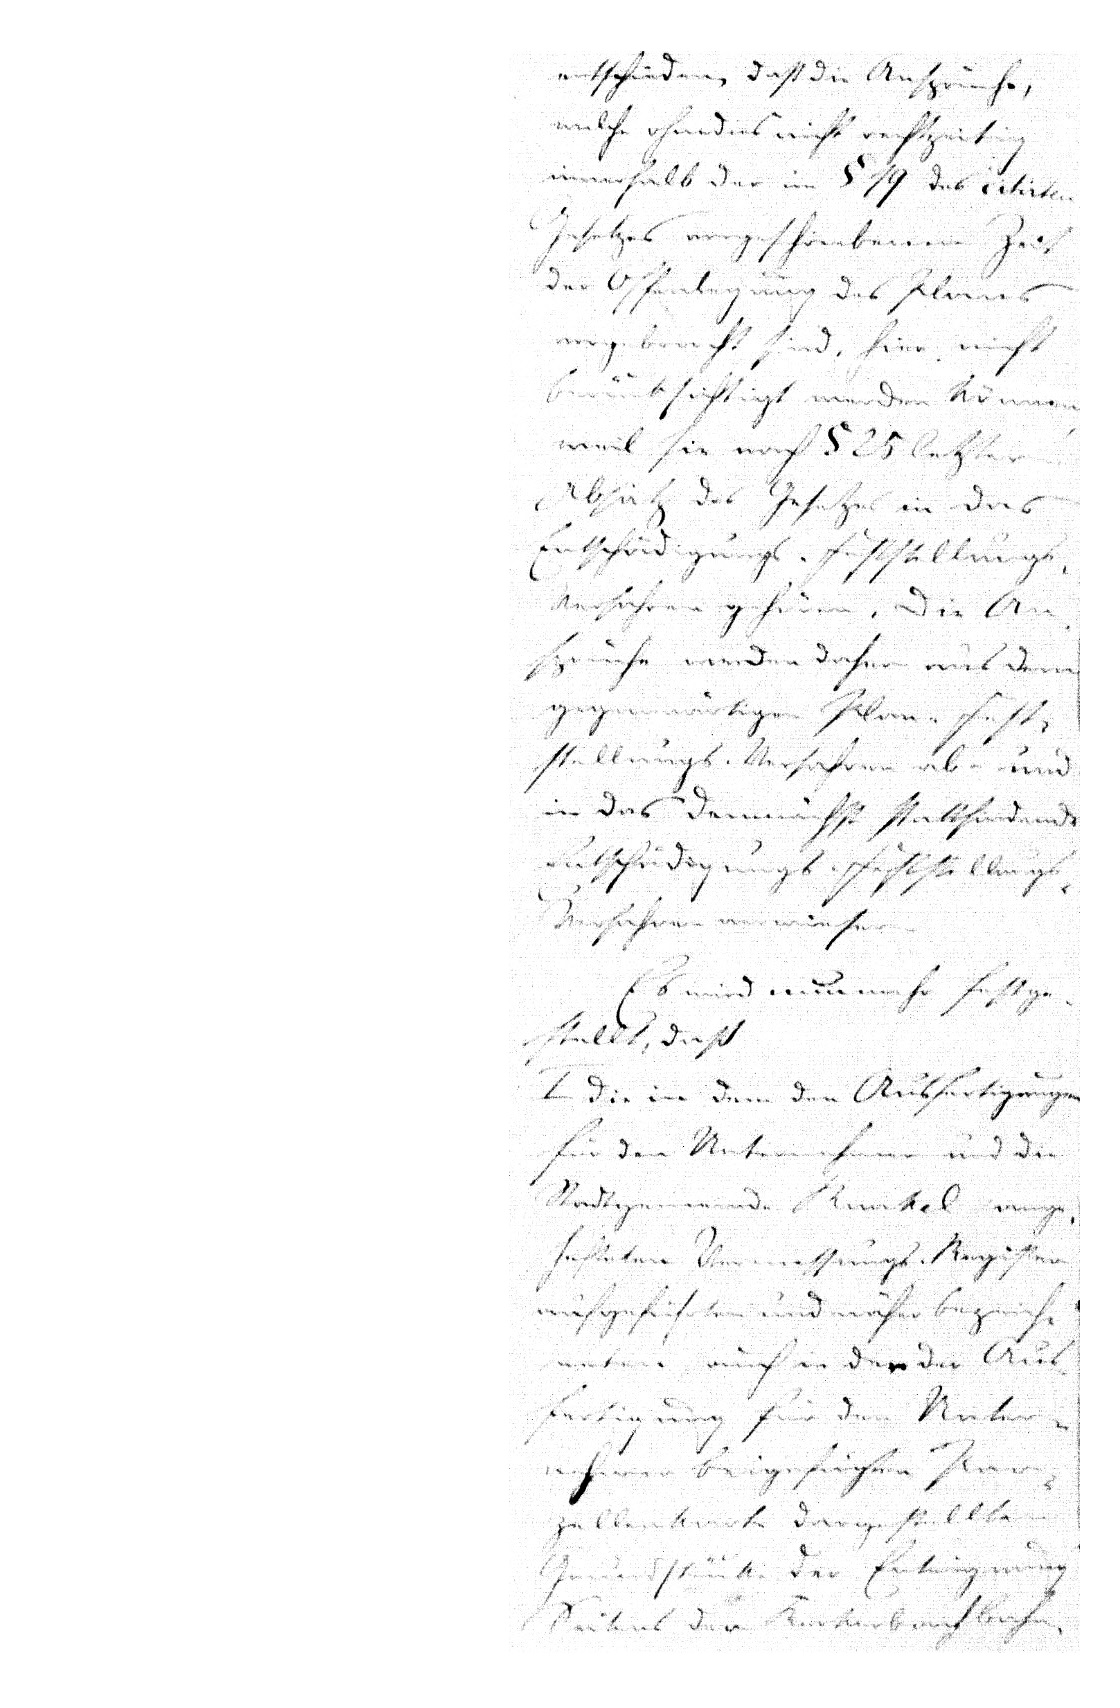 entschieden, daß die Ansprüche,
welche ohnedies nicht rechtzeitig
innerhalb der im § 19 des citirten
Gesetzes vorgeschriebenen Zeit
der Offenlegung des Planes
vorgebracht sind, hier nicht
berücksichtigt werden können,
weil sie nach § 25 letzter
Absatz des Gesetzes in das
Entschädigungs-Feststellungs-
Verfahren gehören. Die An-
sprüche werden daher aus dem
gegenwärtigen Plan-Fest-
stellungs-Verfahren ab- und
in das demnächst stattfindende
Entschädigungs-Feststellungs-
Verfahren verwiesen.
Es wird nunmehr festge-
stellt, daß
I die in dem den Ausfertigungen
für den Unternehmer und die
Stadtgemeinde Runkel ange-
hefteten Vermessungs-Register
aufgeführten und näher bezeich-
neten, auch in der der Aus-
fertigung für den Unter-
nehmer beigefügten Par-
zellenkarte dargestellten
Grundstücke der Enteignung
Seitens der Kerkerbachbahn-